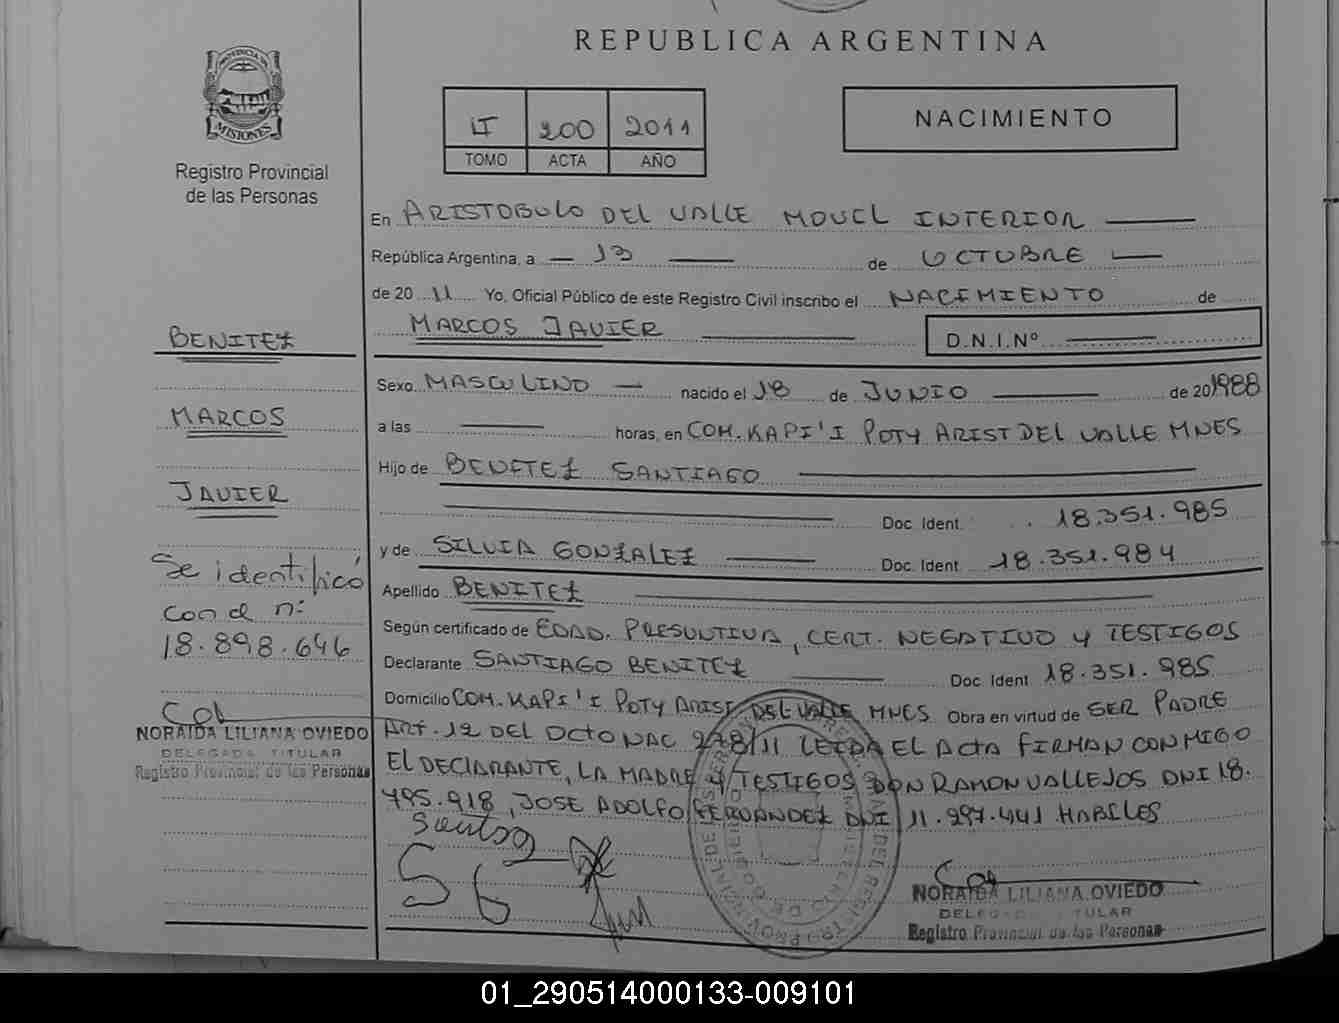 REPUBLICA ARGENTINA
PROVINCIA DE
MISIONES
Registro Provincial
de las Personas
200 2011
TOMO ACTA AÑO
NACIMIENTO
En ARISTOBULO DEL VALLE MOVIL INTERIOR
República Argentina, a 13 de OCTUBRE
de 20 11 Yo, Oficial Público de este Registro Civil inscribo el NACIMIENTO de
MARCOS JAVIER D.N.I.Nº
BENITEZ
MARCOS
JAVIER
Se identificó
con d n:
18.898.646
NORAIDA LILIANA OVIEDO
DELEGADA TITULAR
Registro Provincial de las Personas
Sexo MASCULINO nacido el 18 de JUNIO de 201988
a las horas, en COM. KAPI'I POTY ARIST DEL VALLE MNES
Hijo de BENITEZ SANTIAGO
Doc. Ident. 18.351.985
y de SILVIA GONZALEZ Doc. Ident. 18.351.984
Apellido BENITEZ
Según certificado de EDAD. PRESUNTIVA, CERT. NEGATIVO Y TESTIGOS
Declarante SANTIAGO BENITEZ Doc. Ident. 18.351.985
Domicilio COM. KAPI'I POTY ARIST DEL VALLE MNES Obra en virtud de SER PADRE
ART. 12 DEL DCTO NAC 278/11 LEIDA EL ACTA FIRMAN CONMIGO
EL DECLARANTE, LA MADRE Y TESTIGOS DON RAMON VALLEJOS DNI 18.
495.918, JOSE ADOLFO FERNANDEZ DNI 11.297.441 HABILES
NORAIDA LILIANA OVIEDO
DELEGADA TITULAR
Registro Provincial de las Personas
01_290514000133-009101